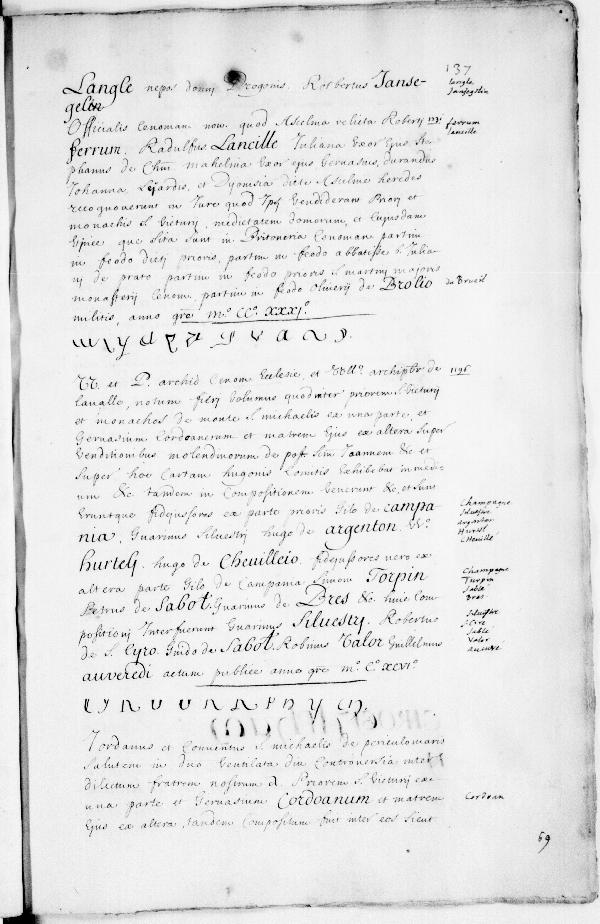 137
Langle nepos domni Drogonis. Rotbertus Janse-
gelin
langle
Jansegelin
Officialis Cenoman. nov. quod Ascelina relicta Roberti
ferrum. Radulfus Lancille Juliana Uxor ejus Ste-
ferrum
lancille
phanus de mahelina Uxor ejus Gervasius, durandus
Johanna, Lejardis, et Dyonisia dicte Asceline heredes
recognoverunt in Jure quod Ipsi Vendiderant Priori et
monachis S. Victurij, medietatem domorum, et cujusdam
Vinee que Sita sunt in Britoneria Cenoman. partim
in feodo dicti prioris, partim in feodo abbatisse S. Julia-
nj de prato partim in feodo prioris S. martinj majoris
monasterij Cenom. partim in feodo Oliverij de Brolio
du Brueil
militis, anno gre m.º CC.º XXXJ.º
et P. archid Cenom Ecclesie, et archipbr de
1196
lavalle, notum fierj Volumus quod inter priorem S. Victurij
et monachos de monte S. michaelis ex una parte, et
Gervasium Cordoanerum et matrem Ejus ex altera Super
Venditionibus molendinorum de Joannem &c et
Super hoc Cartam hugonis Comitis Exhibebat in medi-
um &c tandem in Compositionem Venerunt &c, et Sunt
Eruntque fidejussores ex parte prioris Gilo de Campa-
nia, Guarinus Silvestrj hugo de argenton. W.º
Champagne
Silvestre
argenton
Hursel
Cheuille
hurtelj. hugo de Cheuilleio. fidejussores vero ex
altera parte Gilo de Campania Simon Torpin
Petrus de Sabol. Guarinus de Bres &c. huic Com-
Champagne
Turpin
Sable
Bres
positionj Interfuerunt Guarinus Siluestrj. Robertus
de S. Cyro. Guido de Sabol. Robinus Valor Guillelmus
Siluestre
S. Cire
Sable
Valor
auveredi actum publice anno gre m.º C.º XCVI.º
Jordanus et Conventus S. michaelis de periculo maris
Salutem in duo Ventilata diu Controversia inter
dilectum fratrem nostrum Priorem S. Victurij ex
una parte et Gervasium Cordoanum et matrem
Cordoan
Ejus ex altera, Tandem Compositum fuit inter eos Sicut
69